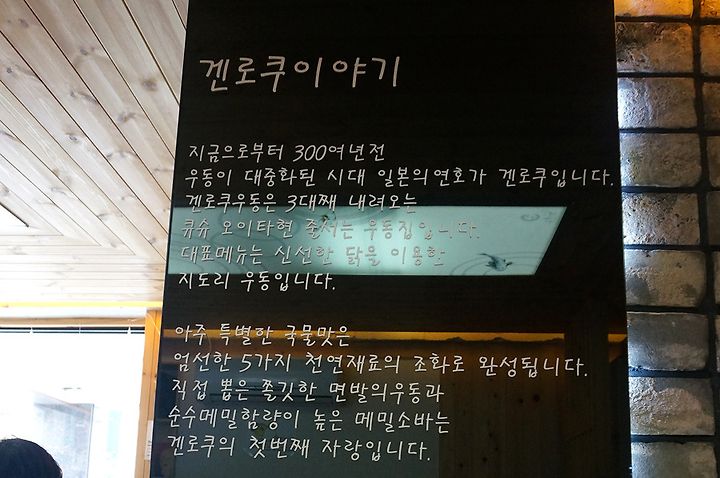 겐로쿠이야기
지금으로부터 300여년전
우동이 대중화된 시대 일본의연호가 겐로쿠입니다.
겐로쿠우동은 3대째 내려오는
큐슈 오이타현 줄서는 우동집입니다.
대표메뉴는 신선한 닭을 이용한
지도리 우동입니다.
아주 특별한 국물맛은
엄선한 5가지 천연재료의 조화로 완성됩니다.
직접 뽑은 쫄깃한 면발의우동과
순수메밀함량이 높은 메밀소바는
겐로쿠의 첫번째 자랑입니다.